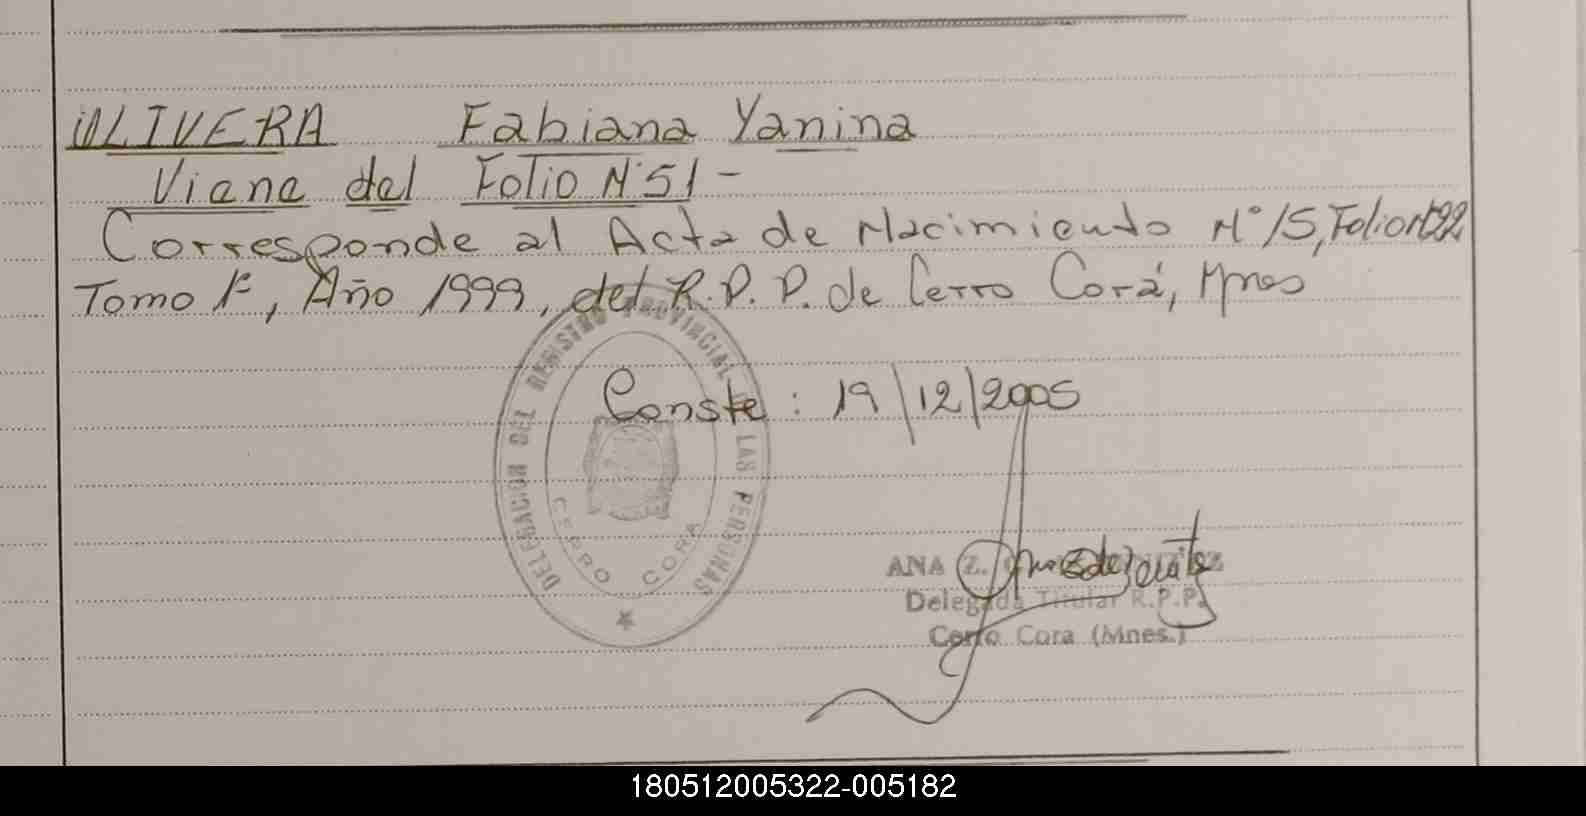 OLIVERA Fabiana Yanina
Viene del Folio Nº51-
Corresponde al Acta de Nacimiento Nº15, Folio Nº22
Tomo 1º, Año 1999, del R.P.P. de Cerro Corá, Mnes
Conste: 19/12/2005
DELEGACION DEL REGISTRO PROVINCIAL DE LAS PERSONAS
CERRO CORA
ANA Z.
Delegada Titular R.P.P.
Cerro Cora (Mnes.)
180512005322-005182